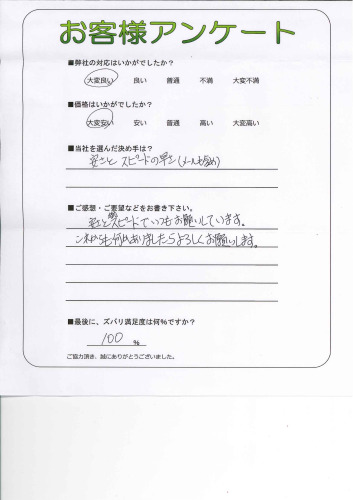 お客様アンケート
■弊社の対応はいかがでしたか？
大変良い 良い 普通 不満 大変不満
■価格はいかがでしたか？
大変安い 安い 普通 高い 大変高い
■当社を選んだ決め手は？
安さと スピードの早さ(メールも含め)
■ご感想・ご要望などをお書き下さい。
安さとスピードでいつもお願いしています。
これからも何かありましたらよろしくお願いします。
■最後に、ズバリ満足度は何%ですか？
100 %
ご協力頂き、誠にありがとうございました。